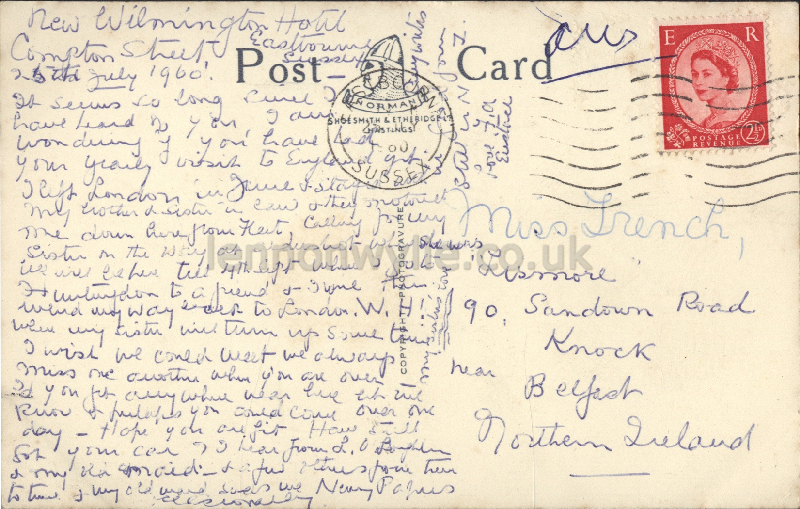 New Wilmington Hotel
Compton Street, Eastbourne
Sussex
25th July 1960.
It seems so long since I
have heard of you. I am
wondering if you have had
your yearly visit to England yet
I left London in June &
my brother & sister in law & they motored
me down here from Fleet, calling for my
sister on the way
we will be here till 4th Sept when I go to
Huntingdon to a friend &
wend my way back to London. W.H.
when my sister will turn up some time
I wish we could meet we always
miss one another when you are over
If you get anywhere near here let me
know & perhaps you could come over one
day - Hope you are fit. Have still
got your car? I hear from
& my old maid - & a few others from time
to time & my old maid sends me Newry Papers
occasionally
Post Card
NORMAN
SHOESMITH & ETHERIDGE LTD
HASTINGS
SUSSEX
COPYRIGHT PHOTOGRAVURE
my sister
ans
E R
POSTAGE
REVENUE
2½D
Miss French,
"Lismore"
90, Sandown Road
Knock
near Belfast
Northern Ireland
lennonwylie.co.uk